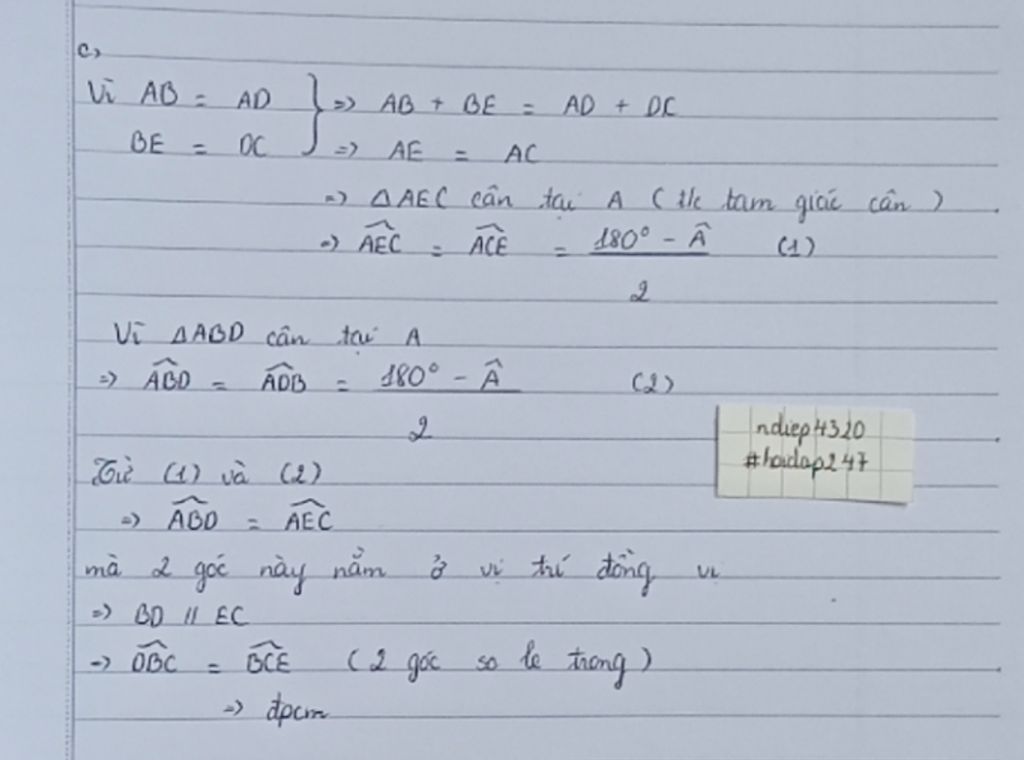 c,
Vì AB = AD } => AB + BE = AD + DC
BE = DC => AE = AC
=> ΔAEC cân tại A (t/c tam giác cân)
=> \widehat{AEC} = \widehat{ACE} = \frac{180° - \hat{A}}{2} (1)
Vì ΔABD cân tại A
=> \widehat{ABD} = \widehat{ADB} = \frac{180° - \hat{A}}{2} (2)
ndiep4320
#hoidap247
Từ (1) và (2)
=> \widehat{ABD} = \widehat{AEC}
mà 2 góc này nằm ở vị trí đồng vị
=> BD // EC
=> \widehat{DBC} = \widehat{BCE} (2 góc so le trong)
=> đpcm